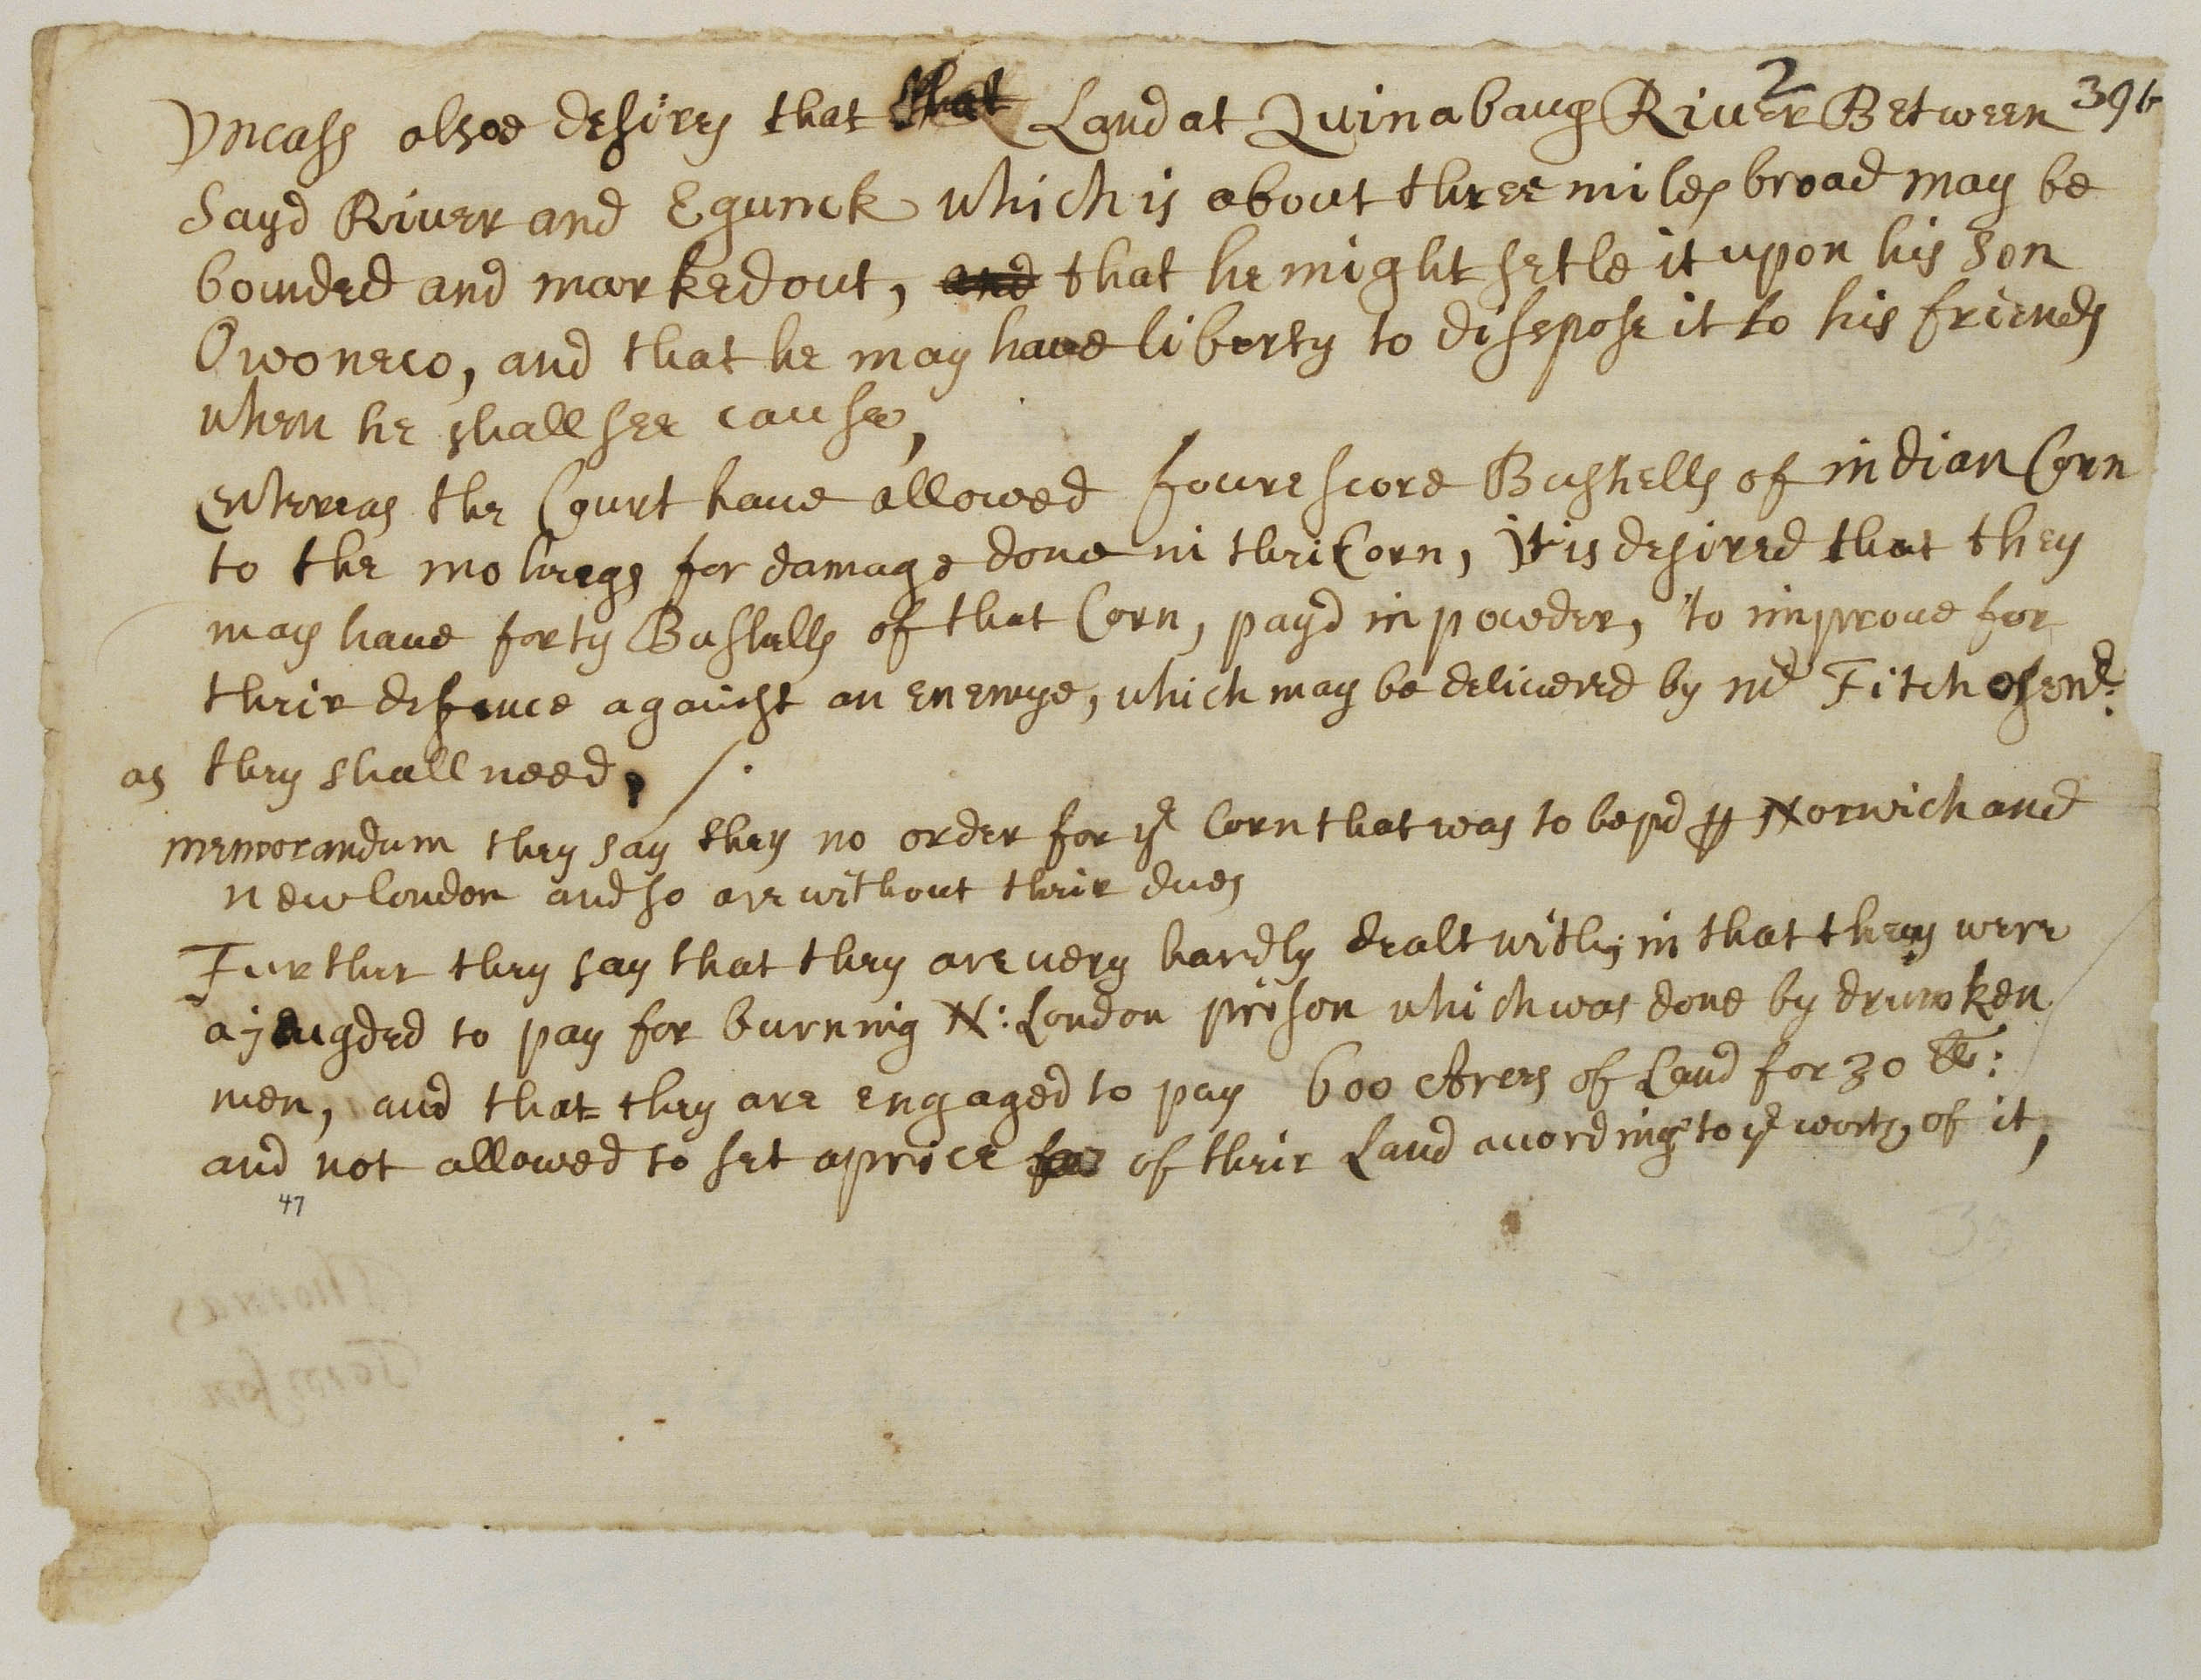 2
39b
Vncass alsoe desires that that Land at Quinabaug River Between
Sayd River and Egunck which is about three miles broad may be
bounded and marked out, and that he might setle it upon his Son
Owoneco, and that he may have liberty to dissposse it to his friends
when he shall see cause,
Whereas the Court have allowed foure score Bushells of indian Corn
to the mohregs for damage done in their Corn, it is desired that they
may have forty Bushells of that Corn, payd in powder, to improve for
their defence against an enemye, which may be delivered by mr Fitch
as they shall need,
memorandum they say they no order for ye Corn that was to be pd p Norwich and
new london and so are without their dues
Further they say that they are very hardly dealt with; in that they were
ajeugded to pay for burning N: London prison which was done by drunken
men, and that they are engaged to pay 600 Acrers of Land for 30 ll:
and not allowed to set a price for of their Land acording to ye worth of it,
47
Thomas